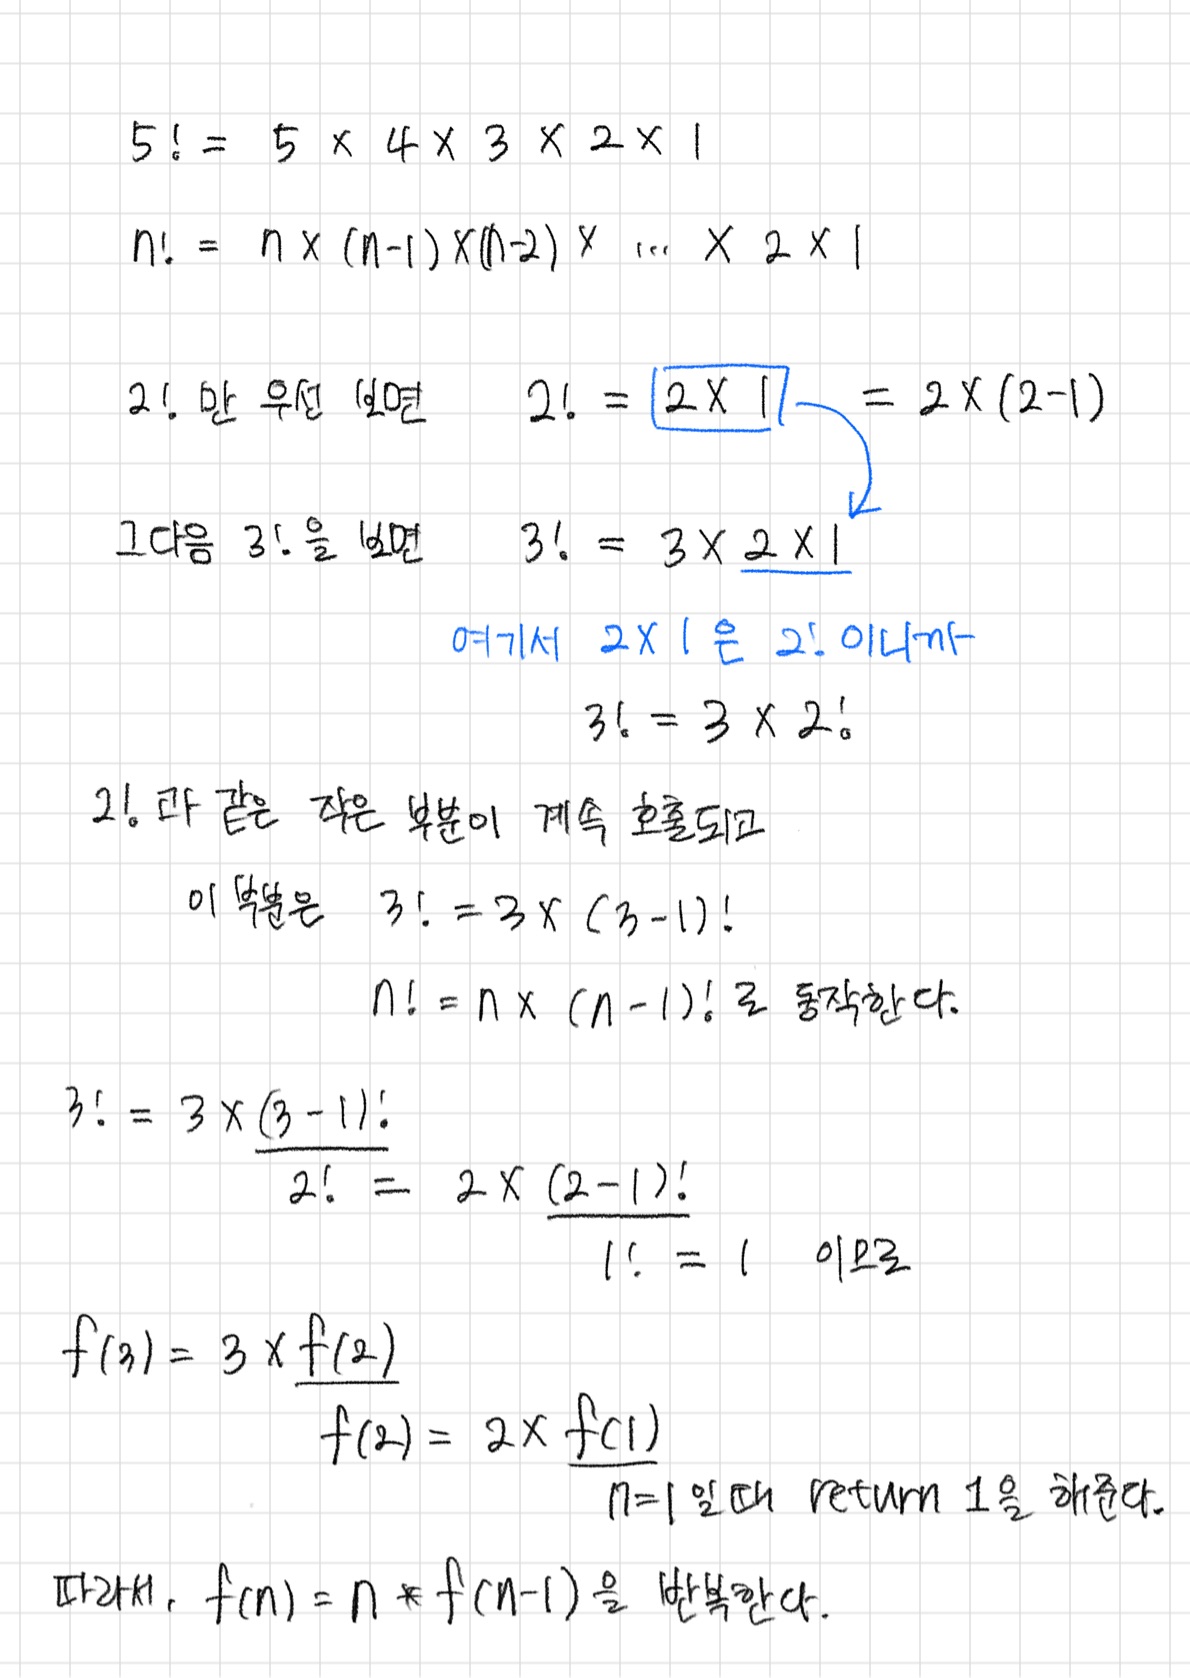 5! = 5 × 4 × 3 × 2 × 1
n! = n × (n-1) × (n-2) × ... × 2 × 1
2! 만 우선 보면 2! = 2 × 1 = 2 × (2-1)
그다음 3!을 보면 3! = 3 × 2 × 1
여기서 2 × 1 은 2! 이니까
3! = 3 × 2!
2! 과 같은 작은 부분이 계속 호출되고
이 부분은 3! = 3 × (3-1)!
n! = n × (n-1)! 로 동작한다.
3! = 3 × (3-1)!
2! = 2 × (2-1)!
1! = 1 이므로
f(3) = 3 × f(2)
f(2) = 2 × f(1)
n=1 일 때 return 1을 해준다.
따라서, f(n) = n * f(n-1) 을 반복한다.